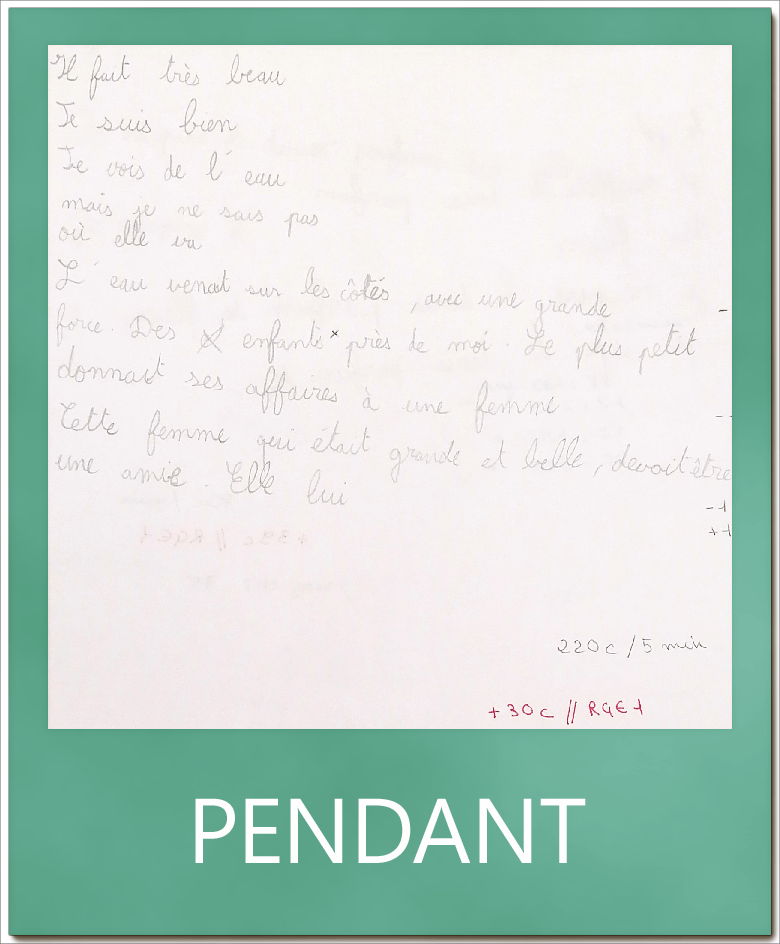 Il fait très beau
Je suis bien
Je vois de l'eau
mais je ne sais pas
où elle va
L'eau venait sur les côtés, avec une grande
force. Des enfants près de moi. Le plus petit
donnait ses affaires à une femme
Cette femme qui était grande et belle, devait être
une amie. Elle lui
220c / 5 min
+30c // RGE+
PENDANT